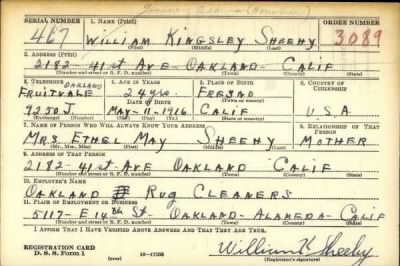 SERIAL NUMBER 1. NAME (Print) ORDER NUMBER
467 WILLIAM KINGSLEY SHEEHY 3089
(First) (Middle) (Last)
2. ADDRESS (Print)
2182 - 41st AVE OAKLAND - CALIF
(Number and street or R. F. D. number) (Town) (County) (State)
3. TELEPHONE 4. AGE IN YEARS 5. PLACE OF BIRTH 6. COUNTRY OF CITIZENSHIP
OAKLAND
FRUITVALE 24 yrs. FRESNO
DATE OF BIRTH (Town or county)
9250 J. MAY-11-1916 CALIF U.S.A
(Exchange) (Number) (Mo.) (Day) (Yr.) (State or country)
7. NAME OF PERSON WHO WILL ALWAYS KNOW YOUR ADDRESS 8. RELATIONSHIP OF THAT PERSON
MRS ETHEL MAY SHEEHY MOTHER
(Mr., Mrs., Miss) (First) (Middle) (Last)
9. ADDRESS OF THAT PERSON
2182 - 41st AVE OAKLAND CALIF
(Number and street or R. F. D. number) (Town) (County) (State)
10. EMPLOYER'S NAME
OAKLAND RUG CLEANERS
11. PLACE OF EMPLOYMENT OR BUSINESS
5117 - E 14th St. OAKLAND - ALAMEDA - CALIF
(Number and street or R. F. D. number) (Town) (County) (State)
I AFFIRM THAT I HAVE VERIFIED ABOVE ANSWERS AND THAT THEY ARE TRUE.
REGISTRATION CARD
D. S. S. Form 1 16-17105 William K Sheehy
(Registrant's signature)